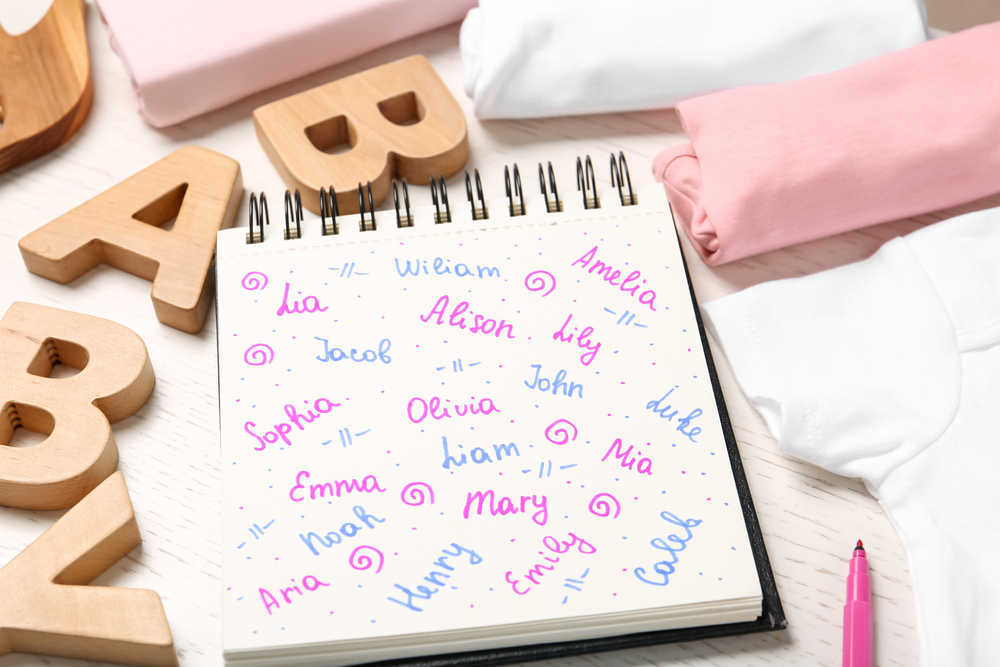 B
A
B
Y
Wiliam
Amelia
Lia
Alison
Lily
Jacob
John
Sophia
Olivia
Luke
Liam
Mia
Emma
Mary
Noah
Emily
Caleb
Aria
Henry